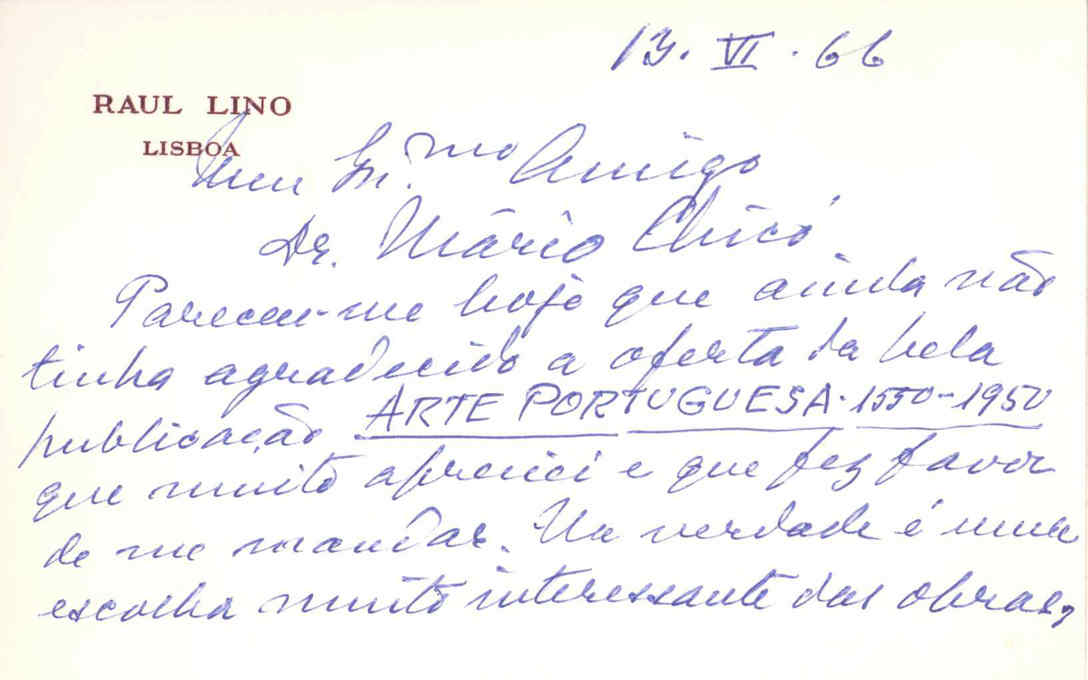 13. VI. 66
RAUL LINO
LISBOA
Meu Ex.mo Amigo
Dr. Mário Chicó.
Pareceu-me hoje que ainda não
tinha agradecido a oferta da bela
publicação ARTE PORTUGUESA·1550-1950
que muito apreciei e que fez favor
de me mandar. Na verdade é uma
escolha muito interessante das obras,